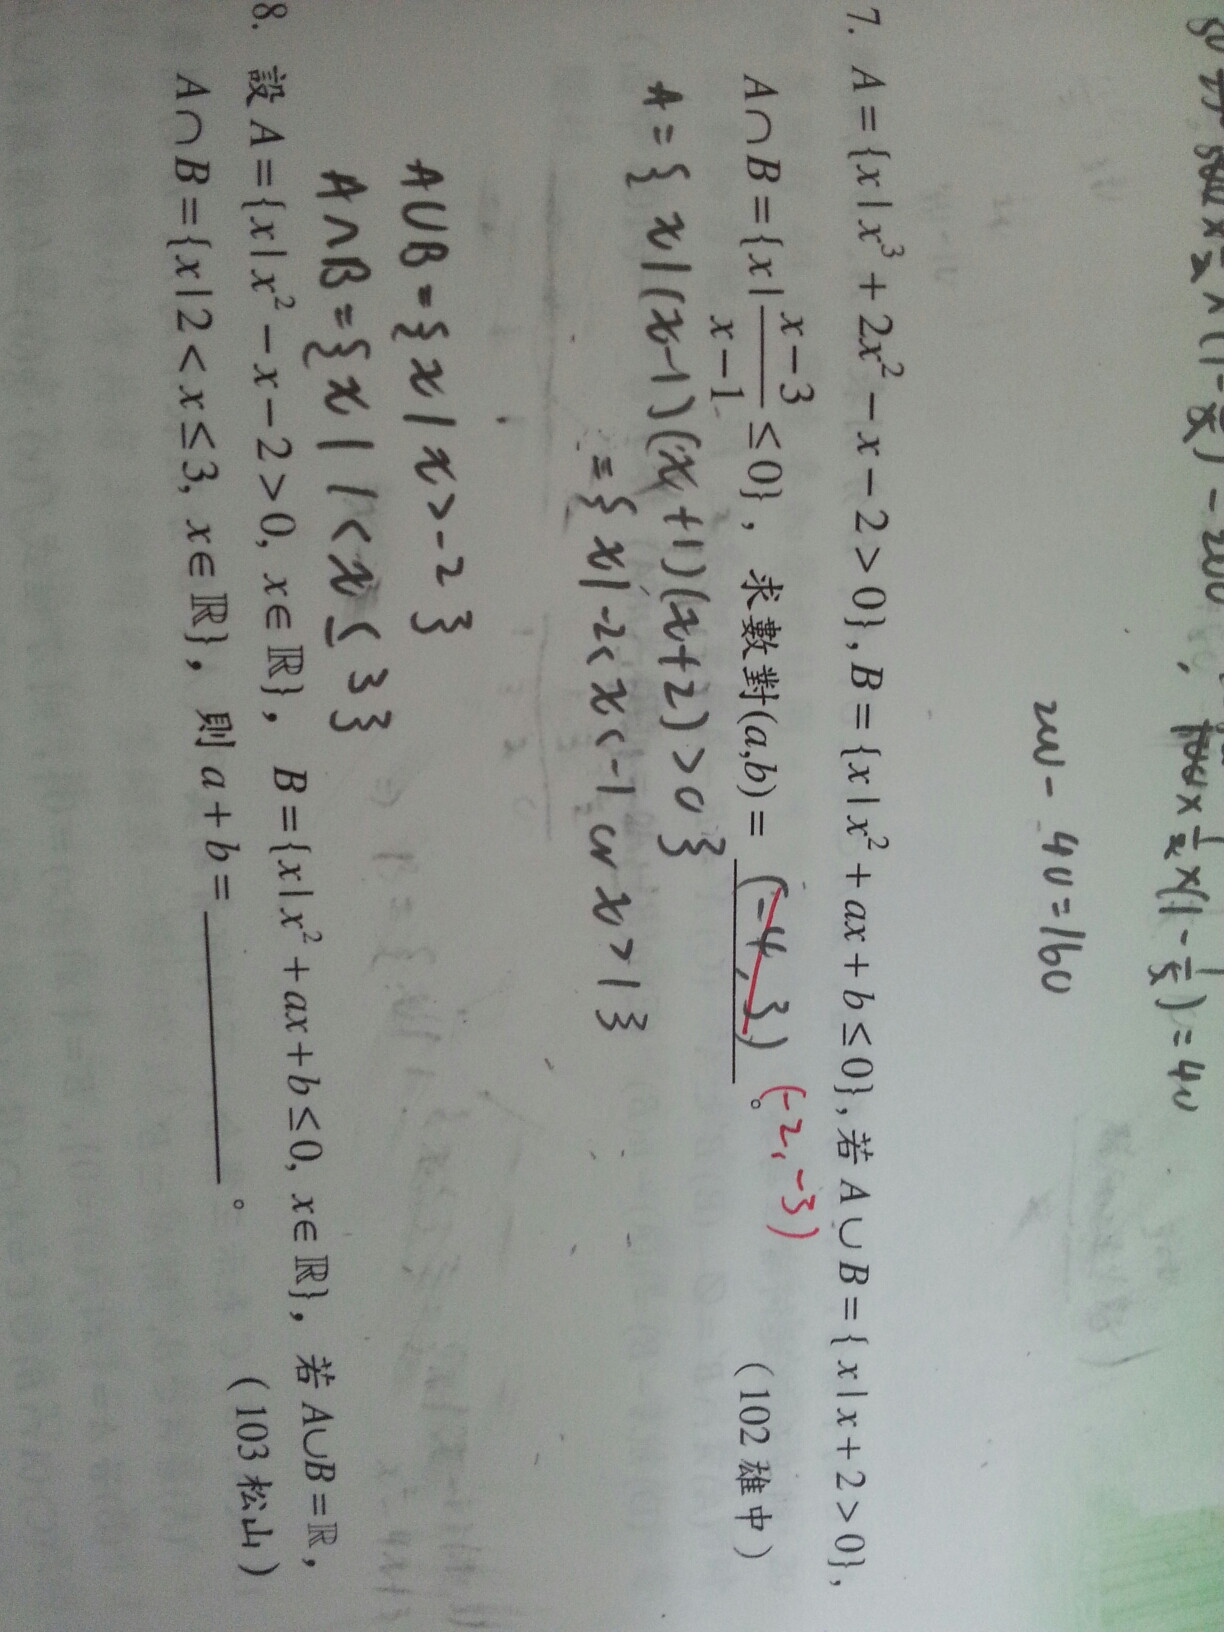 100×½×(1-⅕)=40
200-40=160
7. A={x|x³+2x²-x-2>0}, B={x|x²+ax+b≤0}, 若A∪B={x|x+2>0},
A∩B={x|(x-3)/(x-1)≤0}，求數對(a,b)= (-4,3) 。 (-2,-3) (102雄中)
A={x|(x-1)(x+1)(x+2)>0}
={x|-2<x<-1 or x>1}
A∪B={x|x>-2}
A∩B={x|1<x≤3}
8. 設A={x|x²-x-2>0, x∈ℝ}，B={x|x²+ax+b≤0, x∈ℝ}，若A∪B=ℝ，
A∩B={x|2<x≤3, x∈ℝ}，則a+b=________。 (103松山)